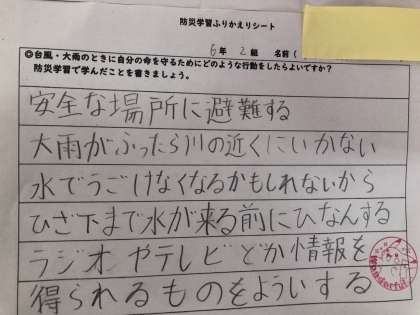 防災学習ふりかえりシート
6年 2組 名前(
◎台風・大雨のときに自分の命を守るためにどのような行動をしたらよいですか?
防災学習で学んだことを書きましょう。
安全な場所に避難する
大雨がふったら川の近くにいかない
水でうごけなくなるかもしれないから
ひざ下まで水が来る前にひなんする
ラジオやテレビどか情報を
得られるものをよういする
Wonderful